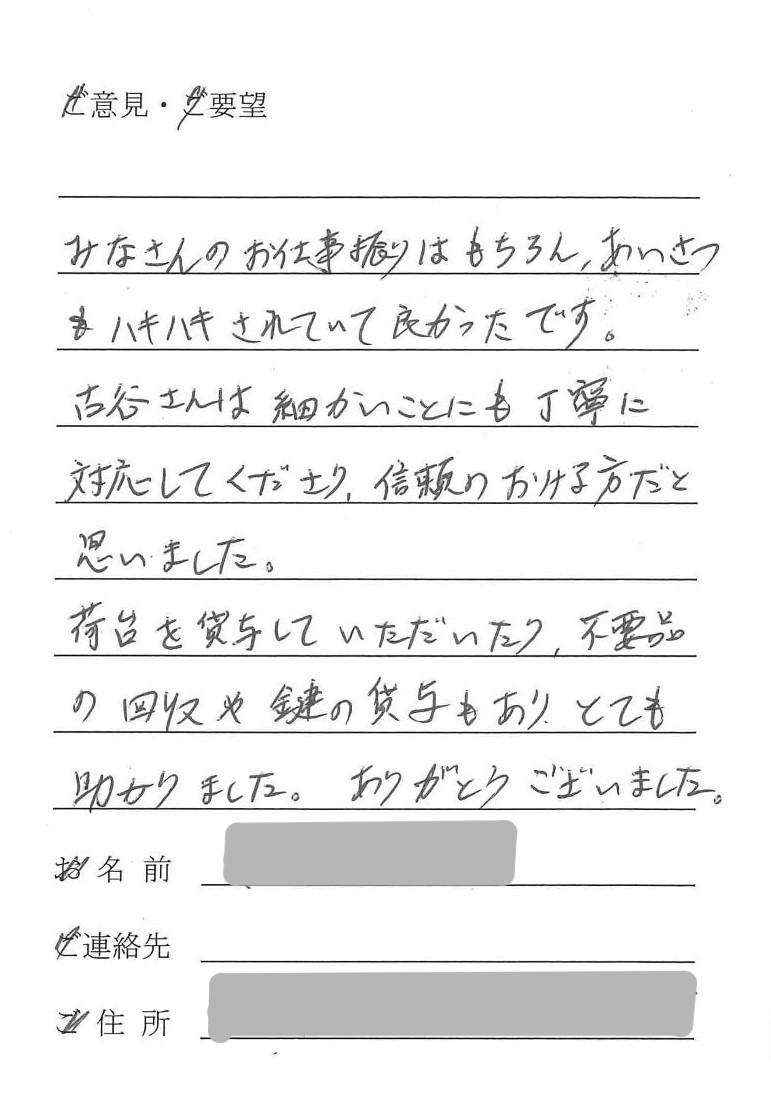 ご意見・ご要望
みなさんのお仕事振りはもちろん、あいさつ
もハキハキされていて良かったです。
古谷さんは細かいことにも丁寧に
対応してくださり、信頼のおける方だと
思いました。
荷台を貸与していただいたり、不要品
の回収や鍵の貸与もあり、とても
助かりました。ありがとうございました。
お名前
ご連絡先
ご住所